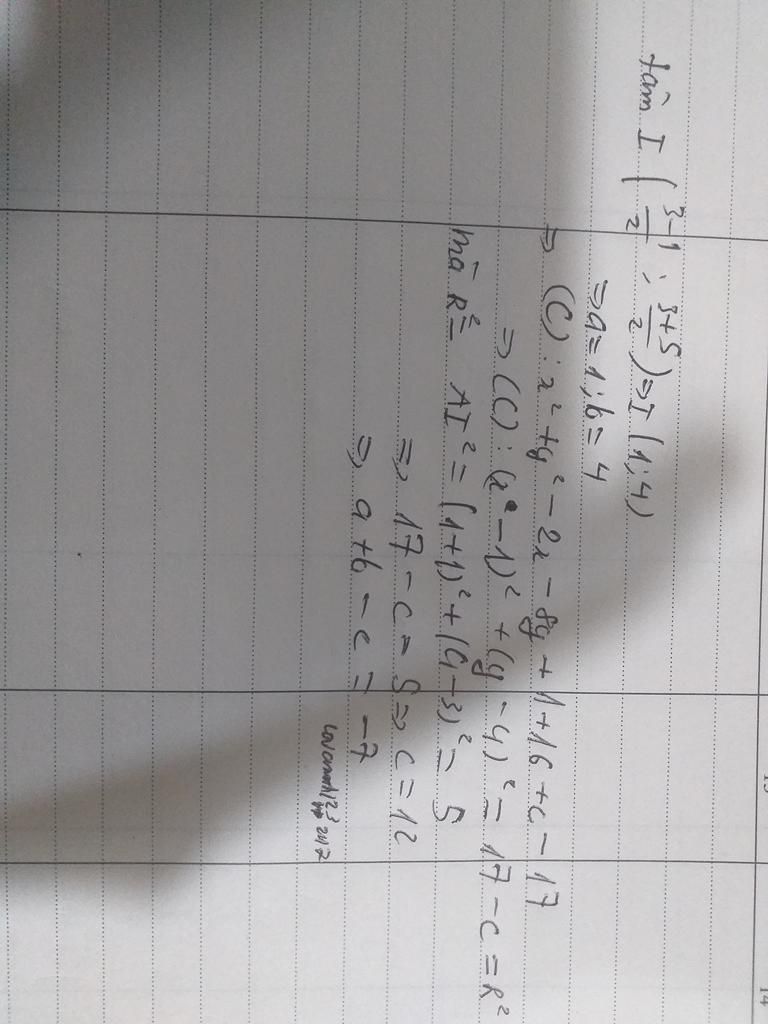 tâm I (3-1/2 ; 3+5/2) => I (1;4)
=> a = 1 ; b = 4
=> (C) : x² + y² - 2x - 8y + 1 + 16 + c - 17
=> (C) : (x - 1)² + (y - 4)² = 17 - c = R²
mà R² = AI² = (1+1)² + (4-3)² = 5
=> 17 - c = 5 => c = 12
=> a + b - c = -7
13
14